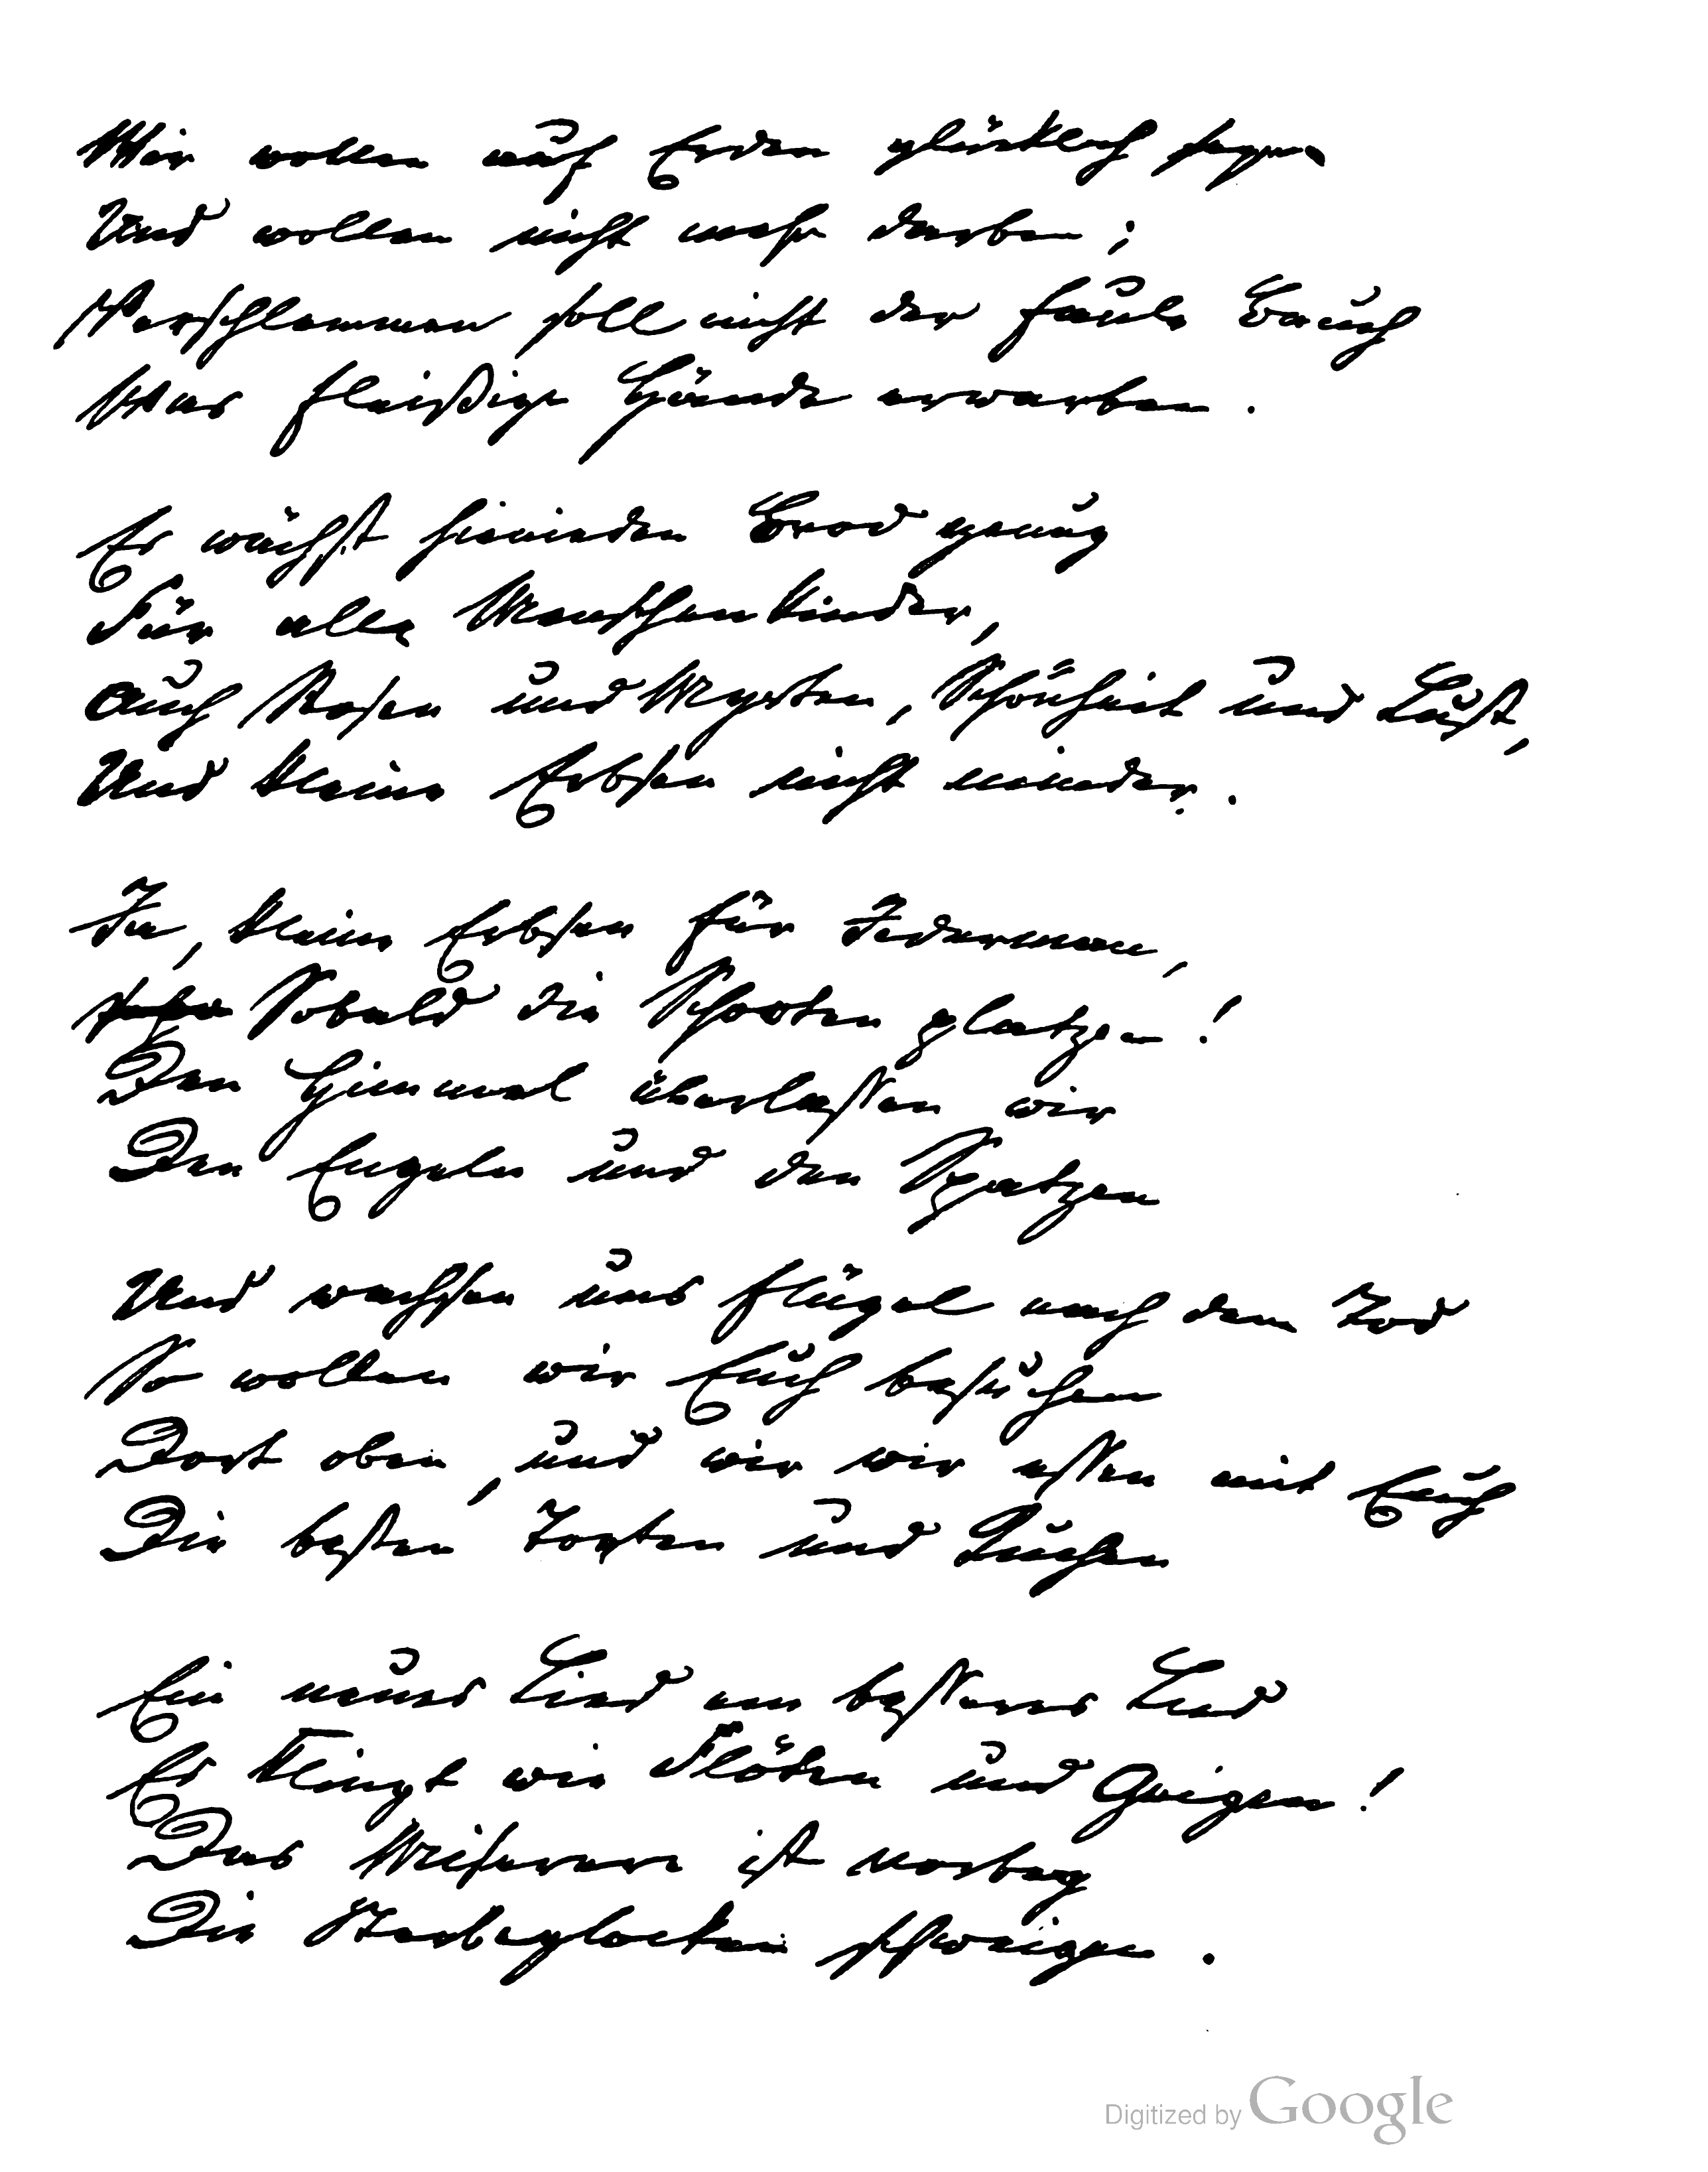 Wir wollen auf Erden glücklich seyn
Und wollen nicht mehr darben;
Verschlemmen soll nicht der faule Bauch
Was fleißige Hände erwarben.
Es wächst hienieden Brod genug
Für alle Menschenkinder,
Auch Rosen und Myrten, Schönheit und Lust,
Und kleine Erbsen nicht minder.
Ja, kleine Erbsen für Jederman,
Sobald die Schooten platzen!
Den Himmel überlassen wir
Den Engeln und den Spatzen
Und wachsen uns Flügel nach dem Tod
So wollen wir Euch besuchen
Dort oben, und wir wir essen mit Euch
Die besten Torten und Kuchen
Ein neues Lied ein besseres Lied
Es klingt wie Flöten und Geigen!
Das Miserere ist vorbey
Die Sterbeglocken schweigen.
Digitized by Google